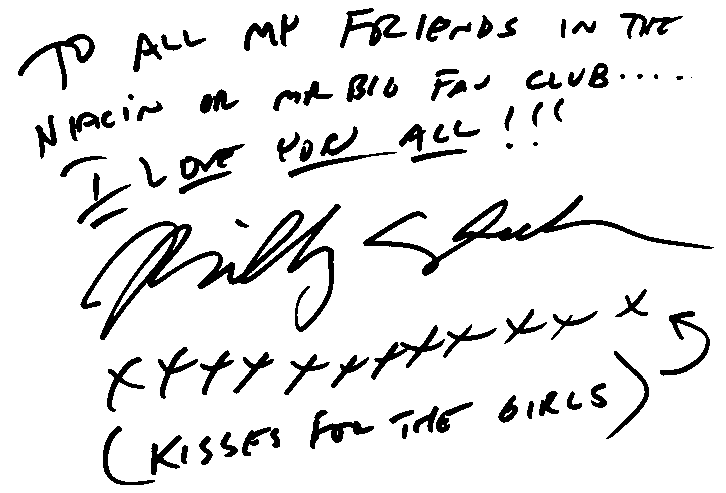 TO ALL MY FRIENDS IN THE
NIACIN OR MR BIG FAN CLUB....
I LOVE YOU ALL!!!
Billy Sheehan
xxxxxxxxxxxx
(KISSES FOR THE GIRLS)